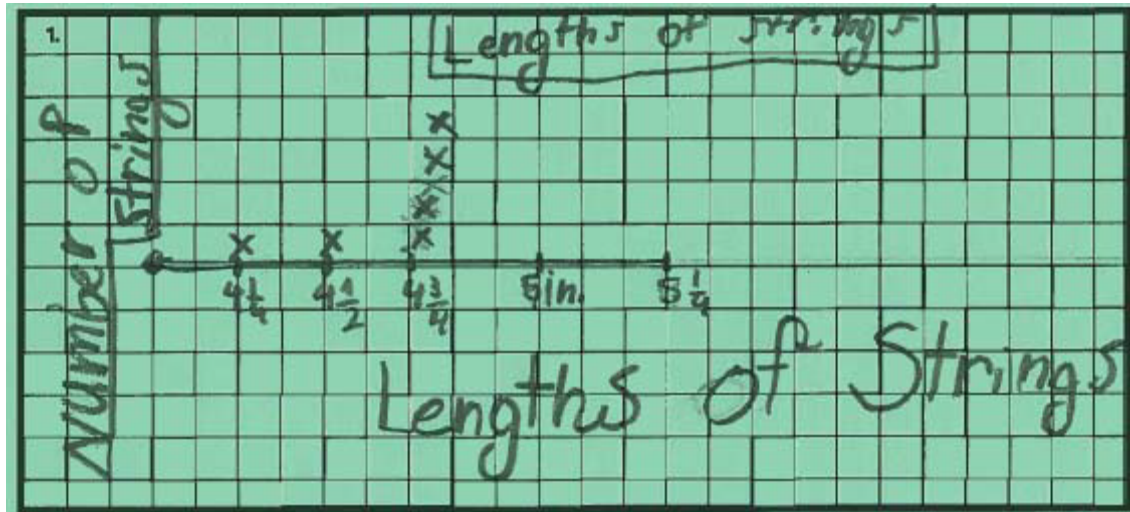 1.
Lengths of strings
Number of
Strings
x
x
x
x
x
x
4 1/4 4 1/2 4 3/4 5in. 5 1/4
Lengths of Strings